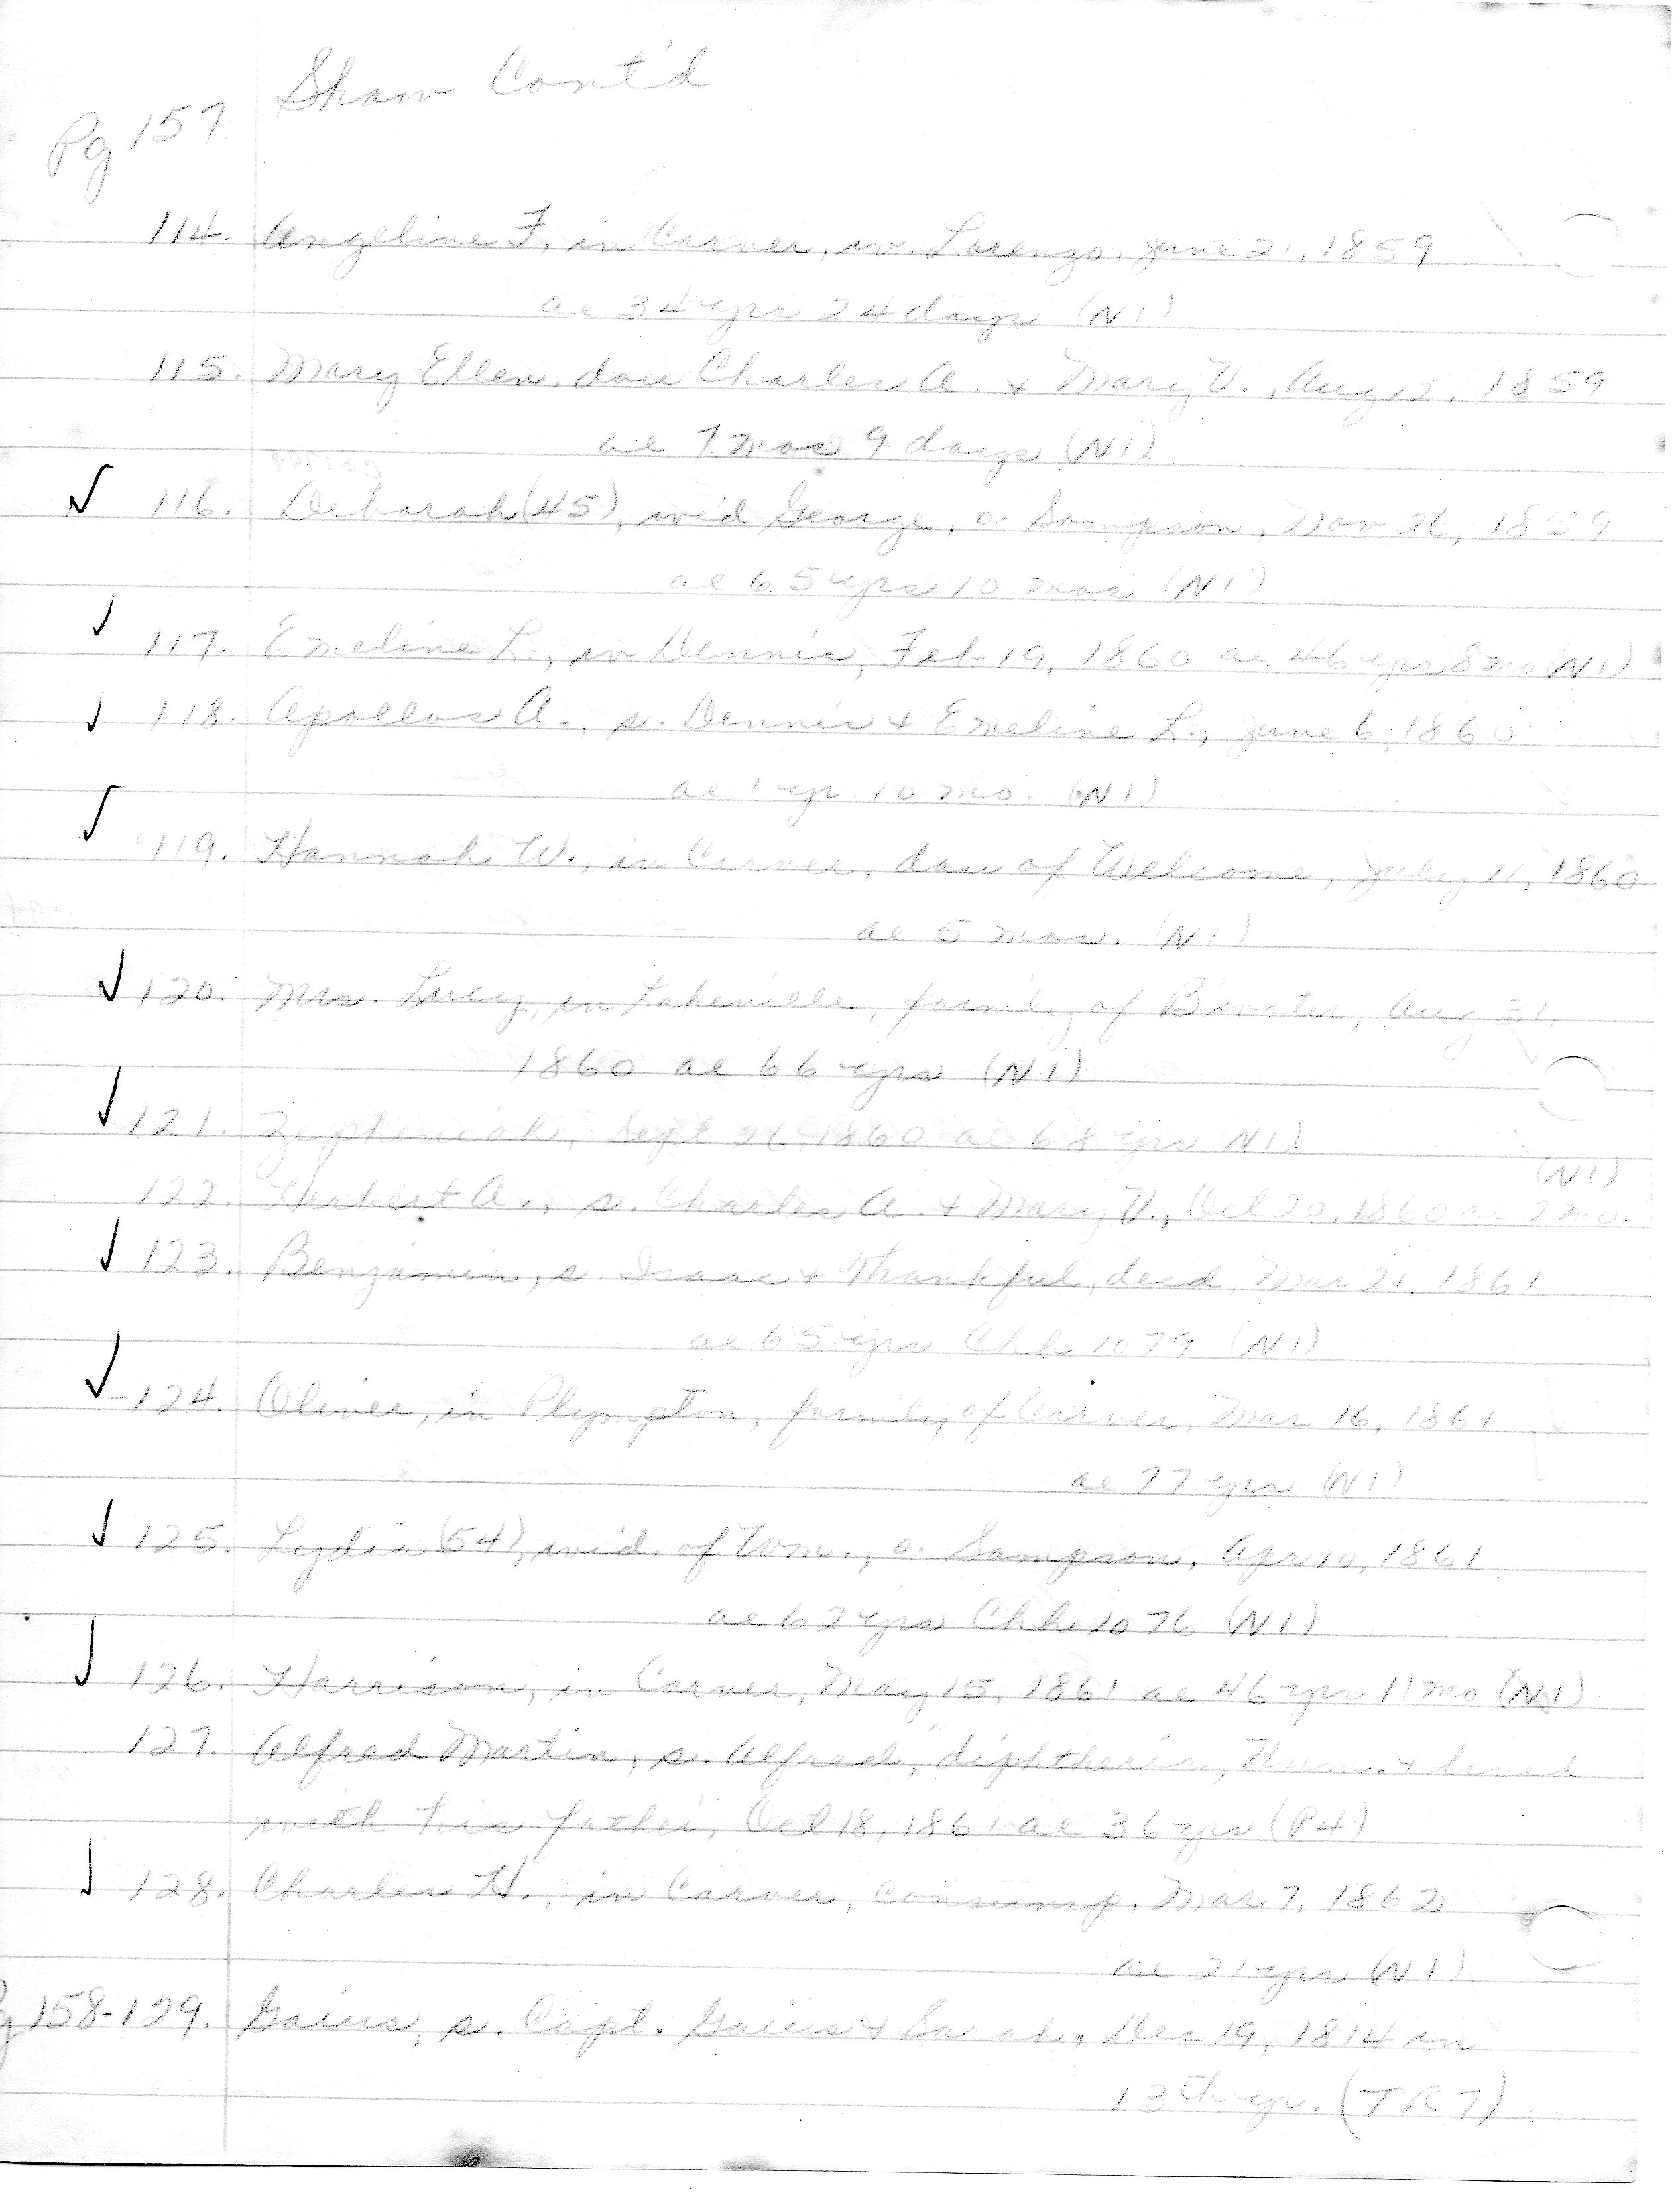 Shaw Cont'd
Pg 157
114. Angeline F., in Carver, w. Lorenzo, June 21, 1859
ae 34 yrs 24 days (N1)
115. Mary Ellen, dau Charles A. + Mary V., Aug 12, 1859
ae 7 mos 9 days (N1)
✓ 116. Deborah (45), wid George, o. Sampson, Nov 26, 1859
ae 65 yrs 10 mos (N1)
✓ 117. Emeline L., w Dennis, Feb 19, 1860 ae 46 yrs 8 mo (N1)
✓ 118. Apollos A., s. Dennis + Emeline L., June 6, 1860
ae 1 yr 10 mo. (N1)
✓ 119. Hannah W., in Carver, dau of Welcome, July 11, 1860
ae 5 mos. (N1)
✓ 120. Mrs. Lucy, in Lakeville, formly of B'water, Aug 31,
1860 ae 66 yrs (N1)
✓ 121. Zepheniah, Sept 26, 1860 ae 68 yrs N1)
(N1)
122. Herbert A., s. Charles A. + Mary V., Oct 20, 1860 ae 2 mo.
✓ 123. Benjamin, s. Isaac + Thankful, decd, Mar 21, 1861
ae 65 yrs Chh 1079 (N1)
✓ 124. Oliver, in Plympton, formly of Carver, Mar 16, 1861
ae 77 yrs (N1)
✓ 125. Lydia (54), wid. of Wm., o. Sampson, Apr 10, 1861
ae 62 yrs Chh 1076 (N1)
✓ 126. Harrison, in Carver, May 15, 1861 ae 46 yrs 11 mo (N1)
127. Alfred Martin, s. Alfred, "diphtheria, Unm. + lived
with his father", Oct 18, 1861 ae 36 yrs (P4)
✓ 128. Charles H., in Carver, consump. Mar 7, 1862
ae 21 yrs (N1)
158-129. Gaius, s. Capt. Gaius + Sarah, Dec 19, 1814 in
13th yr. (TR7)